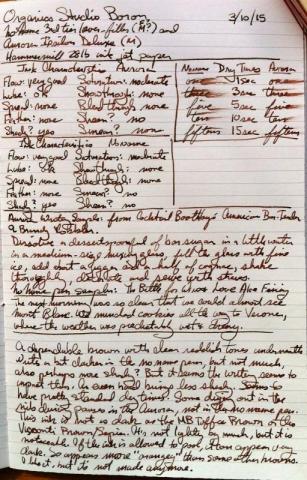 Organics Studio Boron, 3/10/15
No Name 3rd tier lever-filler (M?) and
Aurora Ipsilon Deluxe (M)
Hammermill 28lb ink jet paper
Ink Characteristics Aurora
Flow: very good Saturation: moderate
Lube: ok Showthrough: none
Spread: none Bleedthrough: none
Feather: none Sheen? no
Shade? yes Smear? none
Noname Dry Times Aurora
one 1 sec one
three 3 sec three
five 5 sec five
ten 10 sec ten
fifteen 15 sec fifteen
Ink Characteristics Noname
Flow: very good Saturation: moderate
Lube: ok Showthrough: none
Spread: none Bleedthrough: none
Feather: none Smear? no
Shade? yes Sheen? no
Aurora Wrote Sample: from Cocktail Boothby's American Bar-Tender
Dissolve a dessertspoonful of bar sugar in a little water
in a medium-size mixing glass, fill the glass with fine
ice, add about a jigger and a half of cognac, shake
thoroughly, decorate and serve with straws.
No name pen sample: The Battle for Wines Love Alice Feiring
The next morning was so clear that we could almost see
Mont Blanc. We munched cookies all the way to Verona,
where the weather was predictably wet & dreary.
A dependable brown with clear reddish tones underneath
Writes a bit darker in the no name pen, but not much,
also perhaps more shade? But it seems the writer seems to
impact that. An even hand brings less shade. Seems to
have pretty standard dry times. Some drying out in the
nib during pauses in the Aurora, not in the no name pen.
This ink is not as dark as the MB Toffee Brown or the
Visconti Brown/Sepia. It's not lighter by much, but it is
noticeable. If the ink is allowed to pool, it can appear very
dark. So appears more "orangey" than some other browns.
I like it, but to not made anymore.